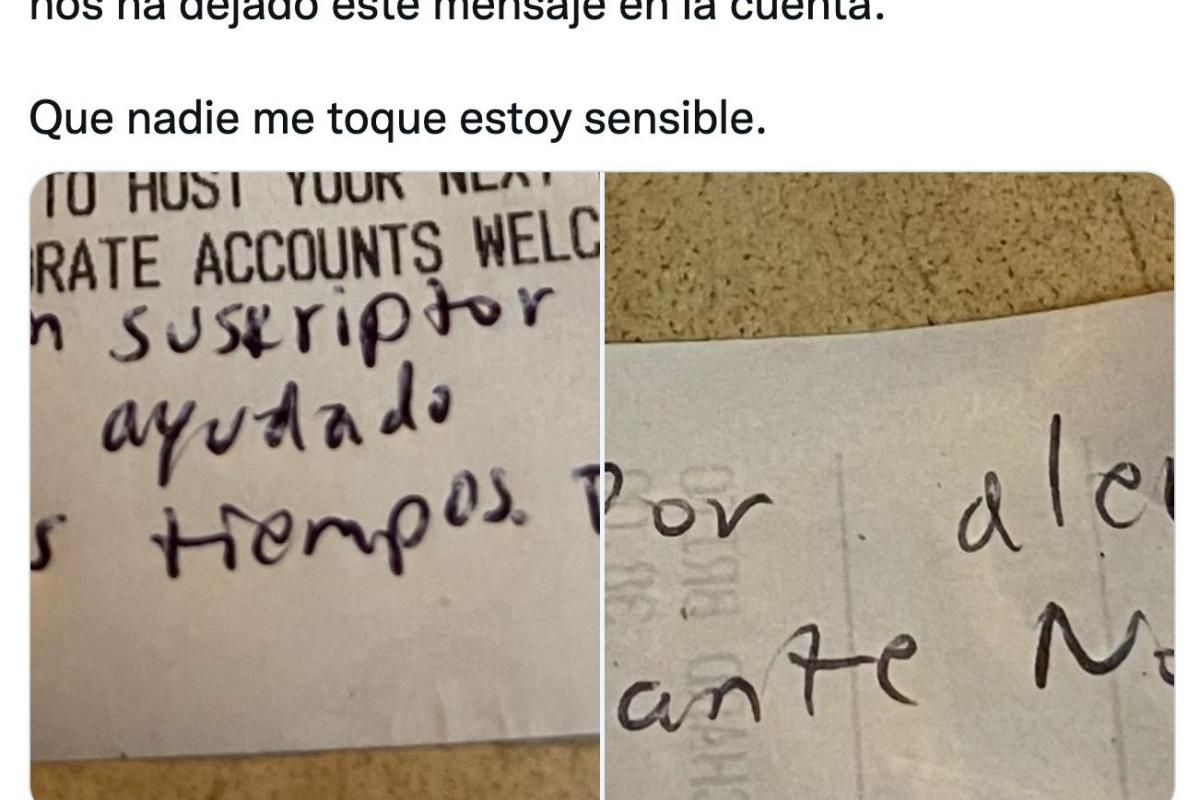 nos ha dejado este mensaje en la cuenta.
Que nadie me toque estoy sensible.
TO HOST YOUR NEXT
RATE ACCOUNTS WELC
n suskriptor
ayudado
s tiempos.
Por ale
ante No